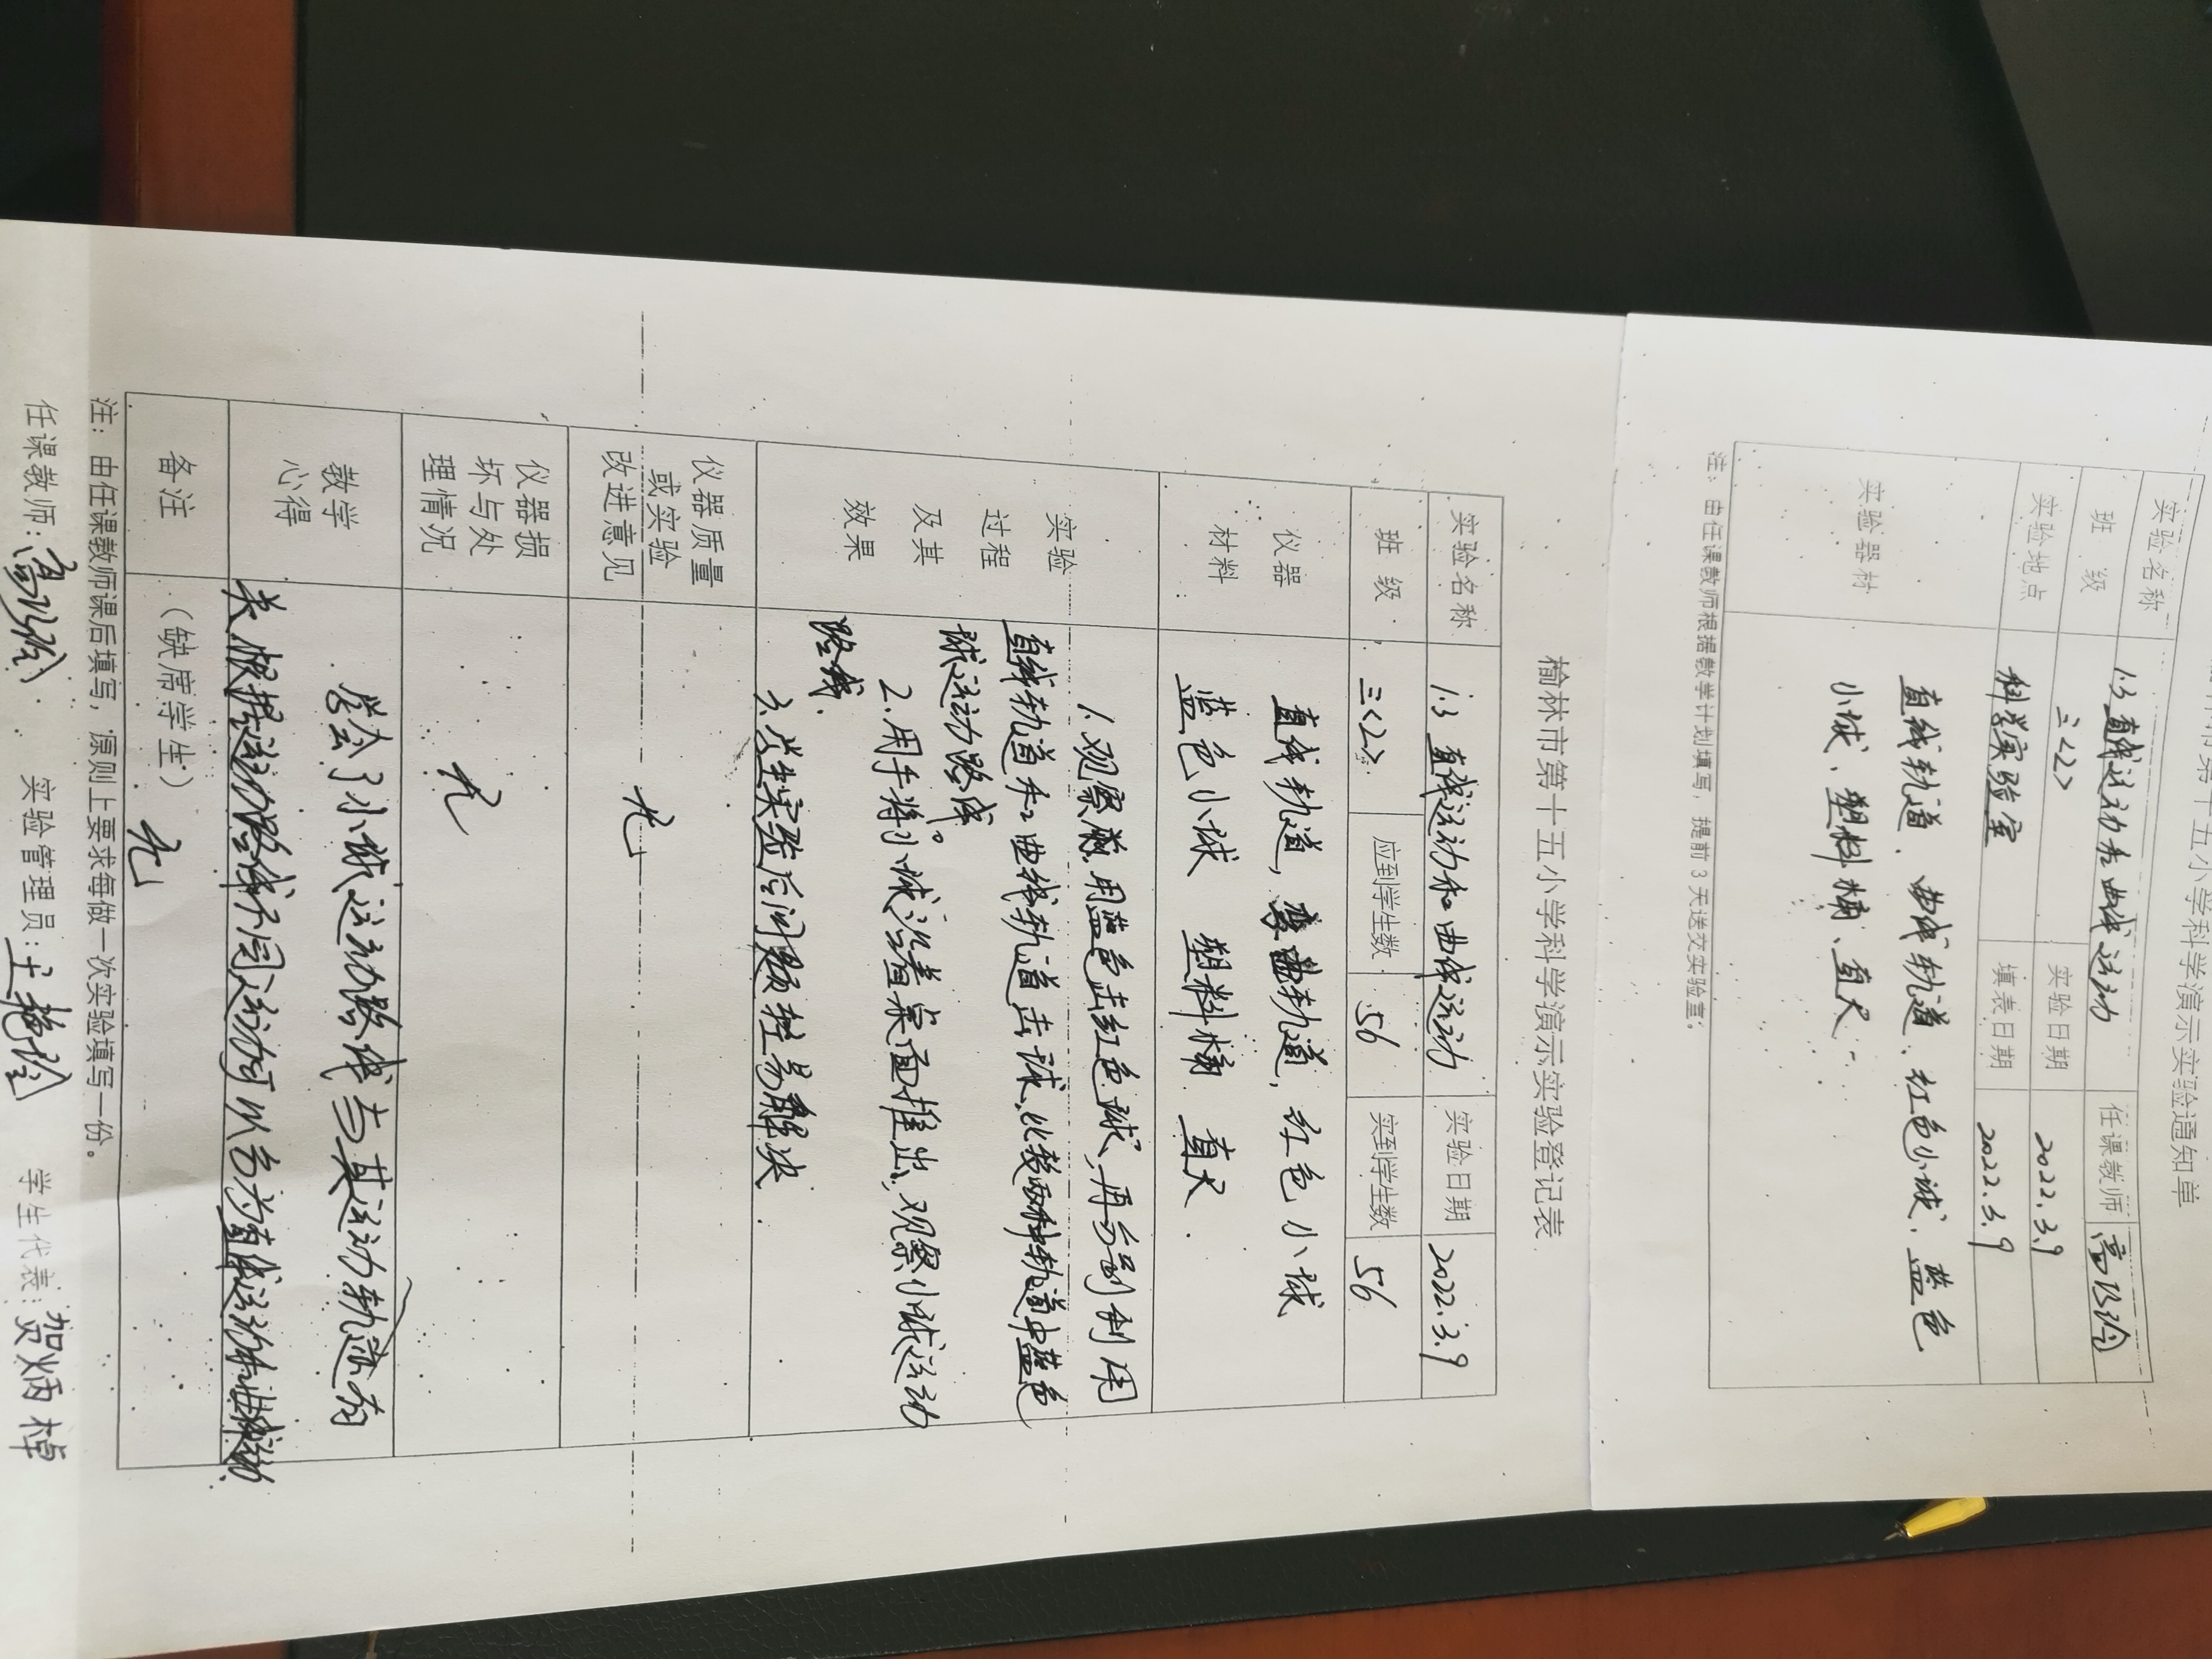 榆林市第十五小学科学演示实验通知单
实验名称 1.3 直线运动和曲线运动 任课教师
班 级 三<2> 实验日期 2022.3.9
实验地点 科学实验室 填表日期 2022.3.9
实验器材 直线轨道、曲线轨道、红色小球、蓝色
小球、塑料桶、直尺
注:由任课教师根据教学计划填写,提前3天送交实验室;
榆林市第十五小学科学演示实验登记表
实验名称 1.3 直线运动和曲线运动 实验日期 2022.3.9
班 级 三<2> 应到学生数 56 实到学生数 56
仪器 直线轨道, 曲轨道, 红色小球
材料 蓝色小球 塑料桶 直尺
实验
过程
及其
效果
1.观察 用蓝色击红色球,再分别利用
直线轨道和曲线轨道击球,比较两种轨道中蓝色
球运动路线。
2.用手将小球沿着桌面推出,观察小球运动
路线.
3.学生实验后问题轻易解决.
仪器质量
或实验
改进意见
无
仪器损
坏与处
理情况
无
教学
心得
学会了小球运动路线与其运动轨迹有
关 根据运动路线不同运动可以分为直线运动和曲线运动.
备注 (缺席学生) 无
注: 由任课教师课后填写,原则上要求每做一次实验填写一份。
任课教师: 实验管理员: 学生代表:贺炳